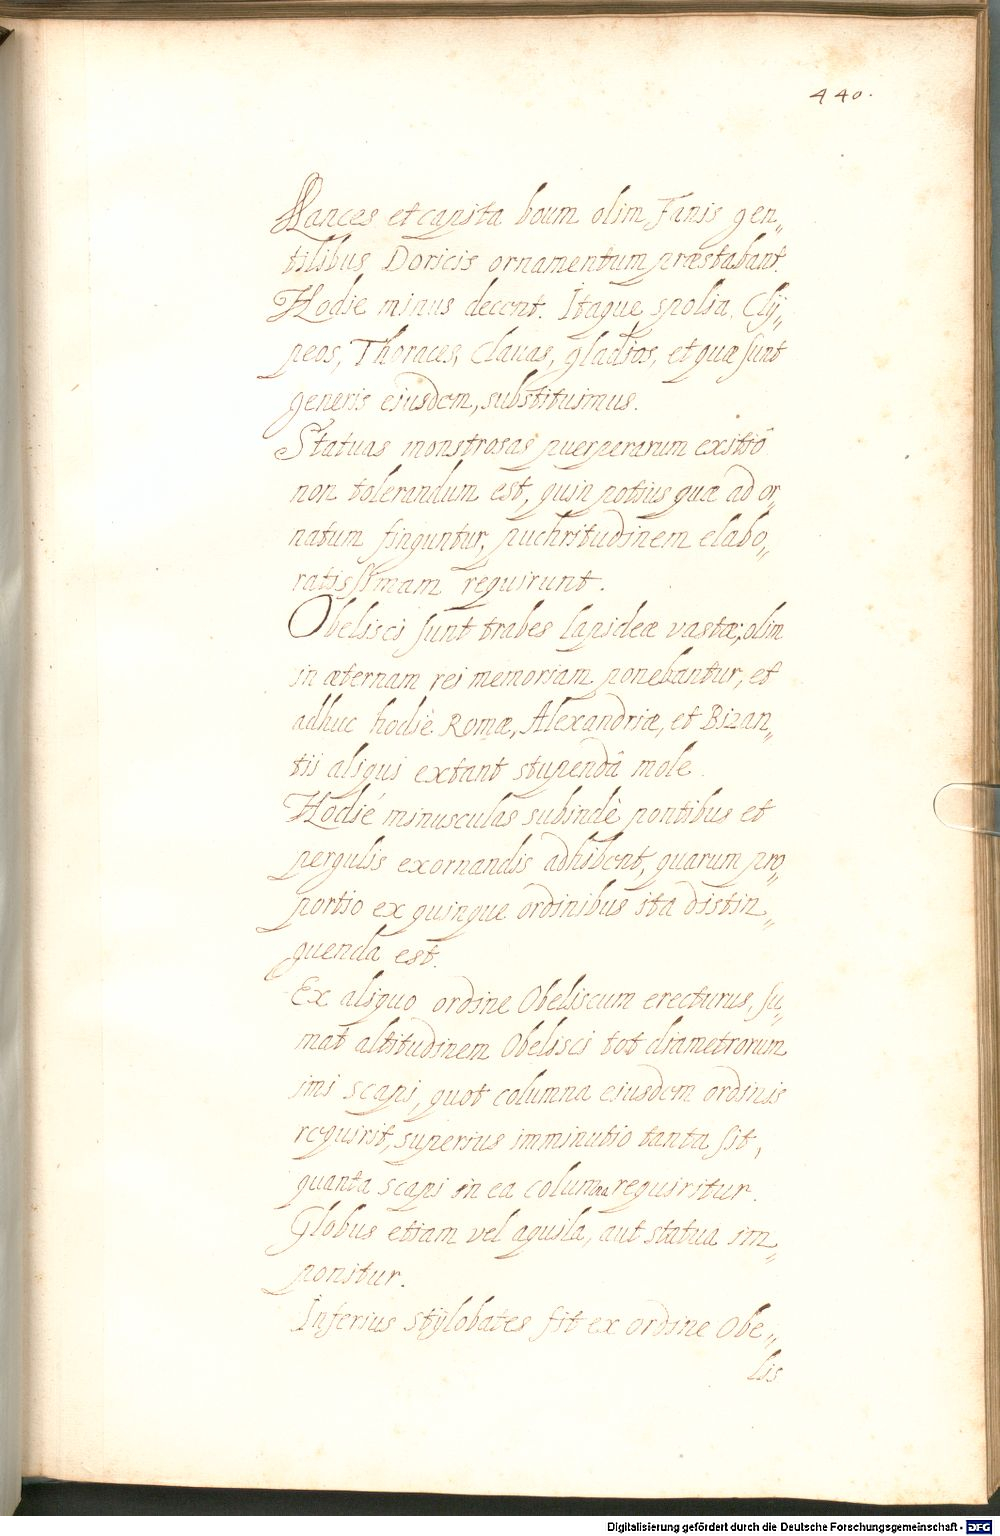 440.
Lances et capita boum olim Fanis gen„
tilibus Doricis ornamentum præstabant.
Hodie minus decent. Itaque spolia, Clÿ„
peos, Thoraces, Clauas, gladios, et quæ sunt
generis eiusdem, substituimus.
Statuas monstrosas puerperarum exitiô
non tolerandum est, quin potius quæ ad or„
natum finguntur, puchritudinem elabo„
ratissimam requirunt.
Obelisci sunt trabes lapideæ vastæ, olim
in æternam rei memoriam ponebantur, et
adhuc hodiè Romæ, Alexandriæ, et Bizan„
tii aliqui extant stupendâ mole.
Hodié minusculas subindè pontibus et
pergulis exornandis adhibent, quarum pro„
portio ex quinque ordinibus ita distin„
guenda est.
Ex aliquo ordine Obeliscum erecturus, su„
mat altitudinem Obelisci tot diametrorum
imi scapi, quot columna eiusdem ordinis
requirit, superius imminutio tanta sit,
quanta scapi in ea columna requiritur.
Globus etiam vel aquila, aut statua im„
ponitur.
Inferius stÿlobates fit ex ordine Obe„
lis
Digitalisierung gefördert durch die Deutsche Forschungsgemeinschaft - DFG